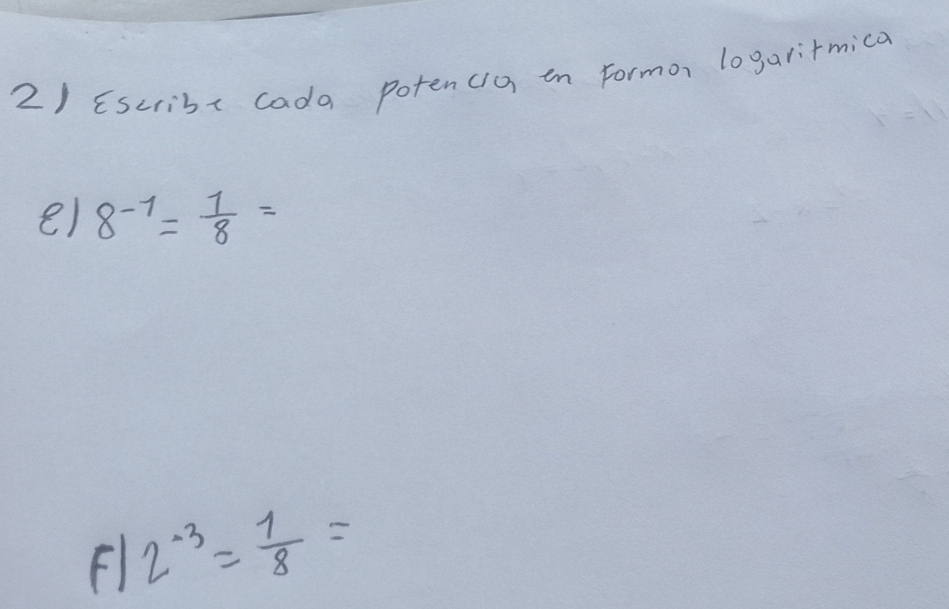 2) Escribe cada potencia en forma logaritmica
e) 8⁻¹ = 1/8 =
F) 2⁻³ = 1/8 =